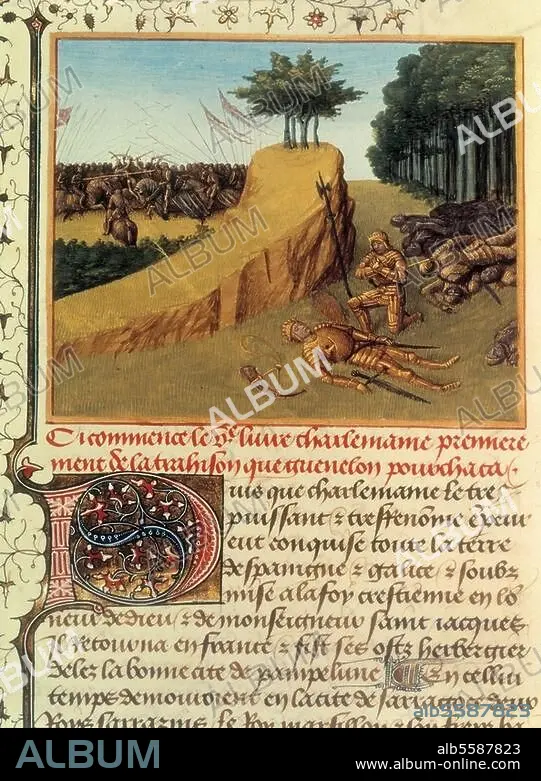 Ci commence le vᵉ livre charlemaine premiere
ment de la trahison que guenelon pourchaca.
Puis que charlemaine le tres
puissant & tres renōme empereur
eut conquise toute la terre
despaingne & galice & soubz
mise a la foy crestienne en lō
neur de dieu & de monseigneur saint iacques
Il retourna en france & fist ses ostz herbergier
delez la bonne cite de pampelune En cellui
temps demouroient en la cite de sarragoce deux
Roys sarrazins, le Roy
ALBUM
alb5587823